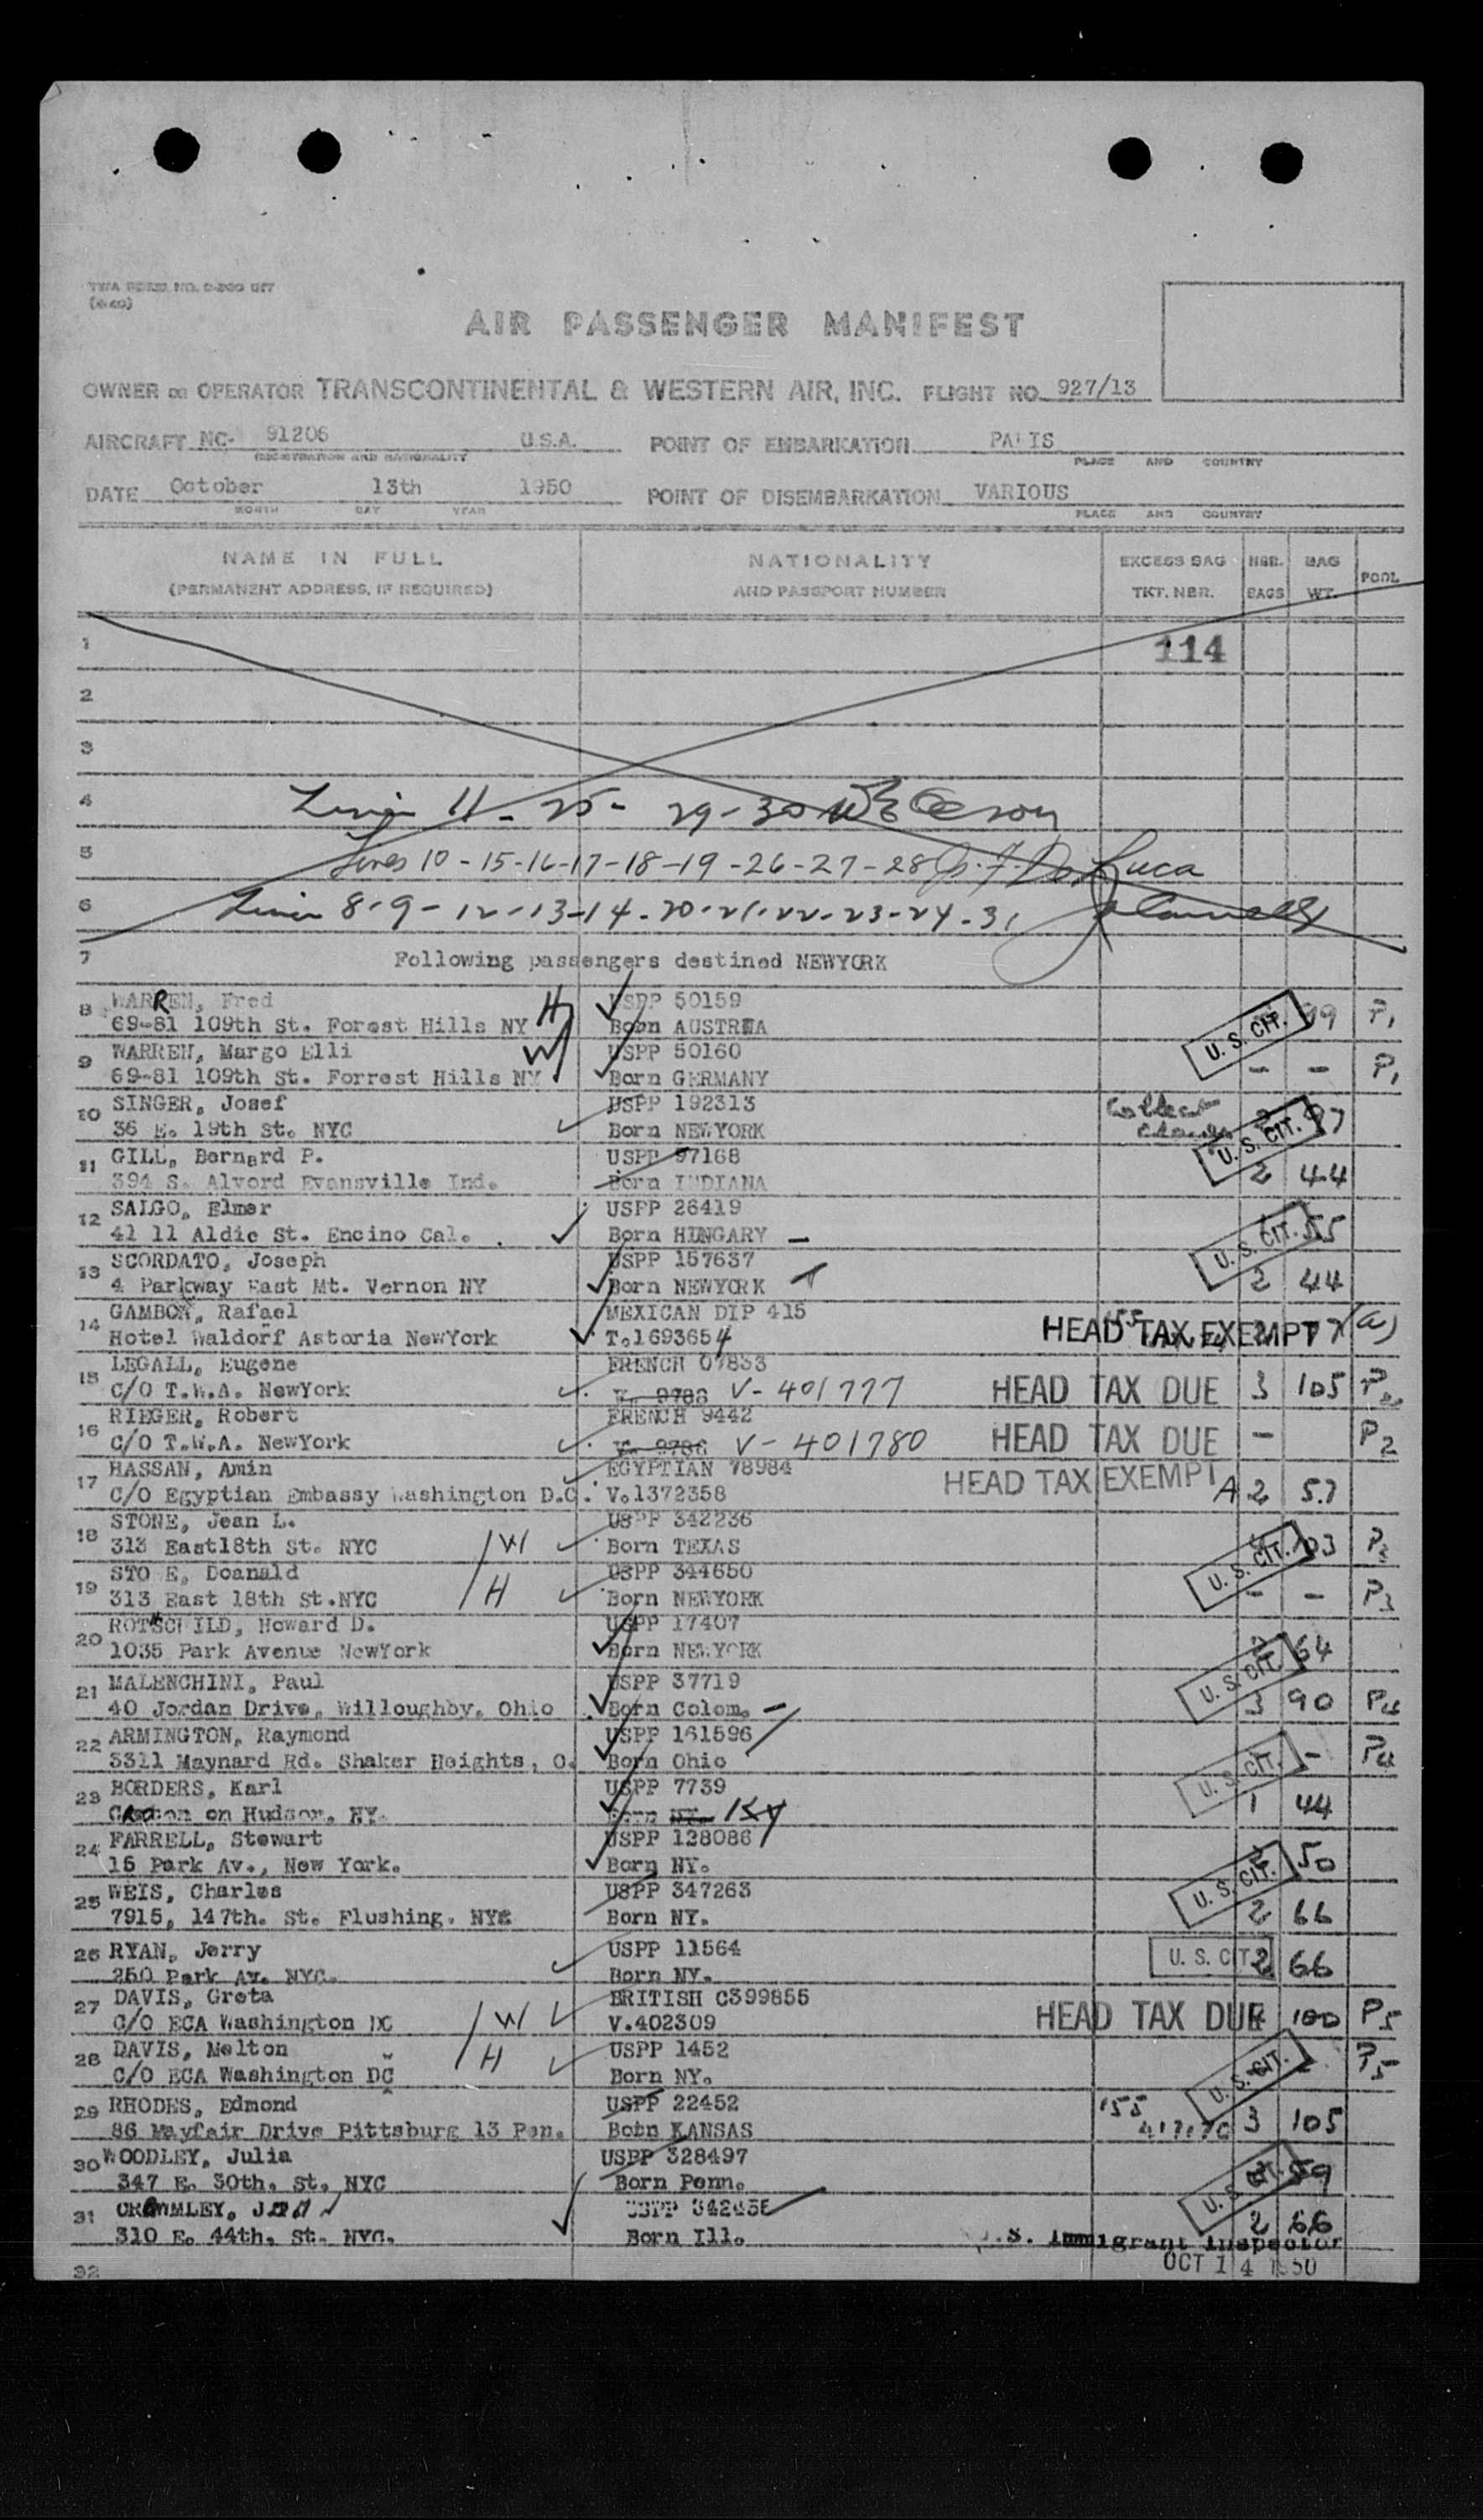 TWA FORM NO.
AIR PASSENGER MANIFEST
OWNER OR OPERATOR TRANSCONTINENTAL & WESTERN AIR, INC. FLIGHT NO. 927/13
AIRCRAFT NC- 91206 U.S.A. POINT OF EMBARKATION PARIS
REGISTRATION AND NATIONALITY PLACE AND COUNTRY
DATE October 13th 1950 POINT OF DISEMBARKATION VARIOUS
MONTH DAY YEAR PLACE AND COUNTRY
NAME IN FULL NATIONALITY EXCESS BAG NBR. BAG POOL
(PERMANENT ADDRESS, IF REQUIRED) AND PASSPORT NUMBER TKT. NBR. BAGS WT.
1 114
2
3
4 11 - 25 - 29 - 30
5 Lines 10 - 15 - 16 - 17 - 18 - 19 - 26 - 27 - 28 De Luca
6 8 - 9 - 12 - 13 - 14 - 20 - 21 - 22 - 23 - 24 - 31
7 Following passengers destined NEWYORK
8 WARREN, Fred H USPP 50159
69-81 109th St. Forest Hills NY Born AUSTRIA U. S. CIT. 99 P1
9 WARREN, Margo Elli W USPP 50160
69-81 109th St. Forrest Hills NY Born GERMANY - - P1
10 SINGER, Josef USPP 192313 Collect
36 E. 19th St. NYC Born NEWYORK U. S. CIT.
11 GILL, Bernard P. USPP 97168
394 S. Alvord Evansville Ind. Born INDIANA 2 44
12 SALGO, Elmer USPP 26419
41 11 Aldic St. Encino Cal. Born HUNGARY - U. S. CIT. 55
13 SCORDATO, Joseph USPP 157637
4 Parkway East Mt. Vernon NY Born NEWYORK 2 44
14 GAMBOA, Rafael MEXICAN DIP 415
Hotel Waldorf Astoria NewYork T.1693654 HEAD TAX EXEMPT
15 LEGALL, Eugene FRENCH 07833
C/O T.W.A. NewYork V. 9786 V-401777 HEAD TAX DUE 3 105 P2
16 RIEGER, Robert FRENCH 9442
C/O T.W.A. NewYork V. 9786 V-401780 HEAD TAX DUE - P2
17 HASSAN, Amin EGYPTIAN 78984 HEAD TAX EXEMPT
C/O Egyptian Embassy Washington D.C. V.1372358 A 2 57
18 STONE, Jean L. USPP 342236
313 East18th St. NYC W Born TEXAS U. S. CIT. 103 P3
19 STO E, Doanald USPP 344650
313 East 18th St.NYC H Born NEWYORK - - P3
20 ROTHSCHILD, Howard D. USPP 17407
1035 Park Avenue NewYork Born NEWYORK U. S. CIT. 64
21 MALENCHINI, Paul USPP 37719
40 Jordan Drive, Willoughby, Ohio Born Colom. - 3 90 P4
22 ARMINGTON, Raymond USPP 161596
3311 Maynard Rd. Shaker Heights, O. Born Ohio U. S. CIT. - P4
23 BORDERS, Karl USPP 7739
Croton on Hudson, NY. Born NY. Ky 1 44
24 FARRELL, Stewart USPP 128086
15 Park Av., New York. Born NY. U. S. CIT. 50
25 WEIS, Charles USPP 347263
7915, 147th. St. Flushing. NY Born NY. 2 66
26 RYAN, Jerry USPP 11564
250 Park Av. NYC. Born NY. U. S. CIT. 2 66
27 DAVIS, Greta BRITISH C399855
C/O ECA Washington DC W V.402309 HEAD TAX DUE 100 P5
28 DAVIS, Melton USPP 1452
C/O ECA Washington DC H Born NY. U. S. CIT. P5
29 RHODES, Edmond USPP 22452 155
86 Mayfair Drive Pittsburg 13 Pen. Born KANSAS 3 105
30 WOODLEY, Julia USPP 328497
347 E. 30th. St. NYC Born Penn. U. S. CIT. 59
31 CROWMLEY, USPP
310 E. 44th. St. NYC. Born Ill. 2 66
U.S. Immigrant Inspector
32 OCT 14 1950